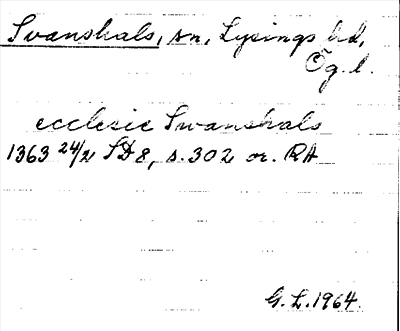 Svanshals, sn, Lysings hd,
Ög. l.
ecclesie Swanshals
1363 24/2 SD 8, s. 302 or. RA
G. L. 1964.